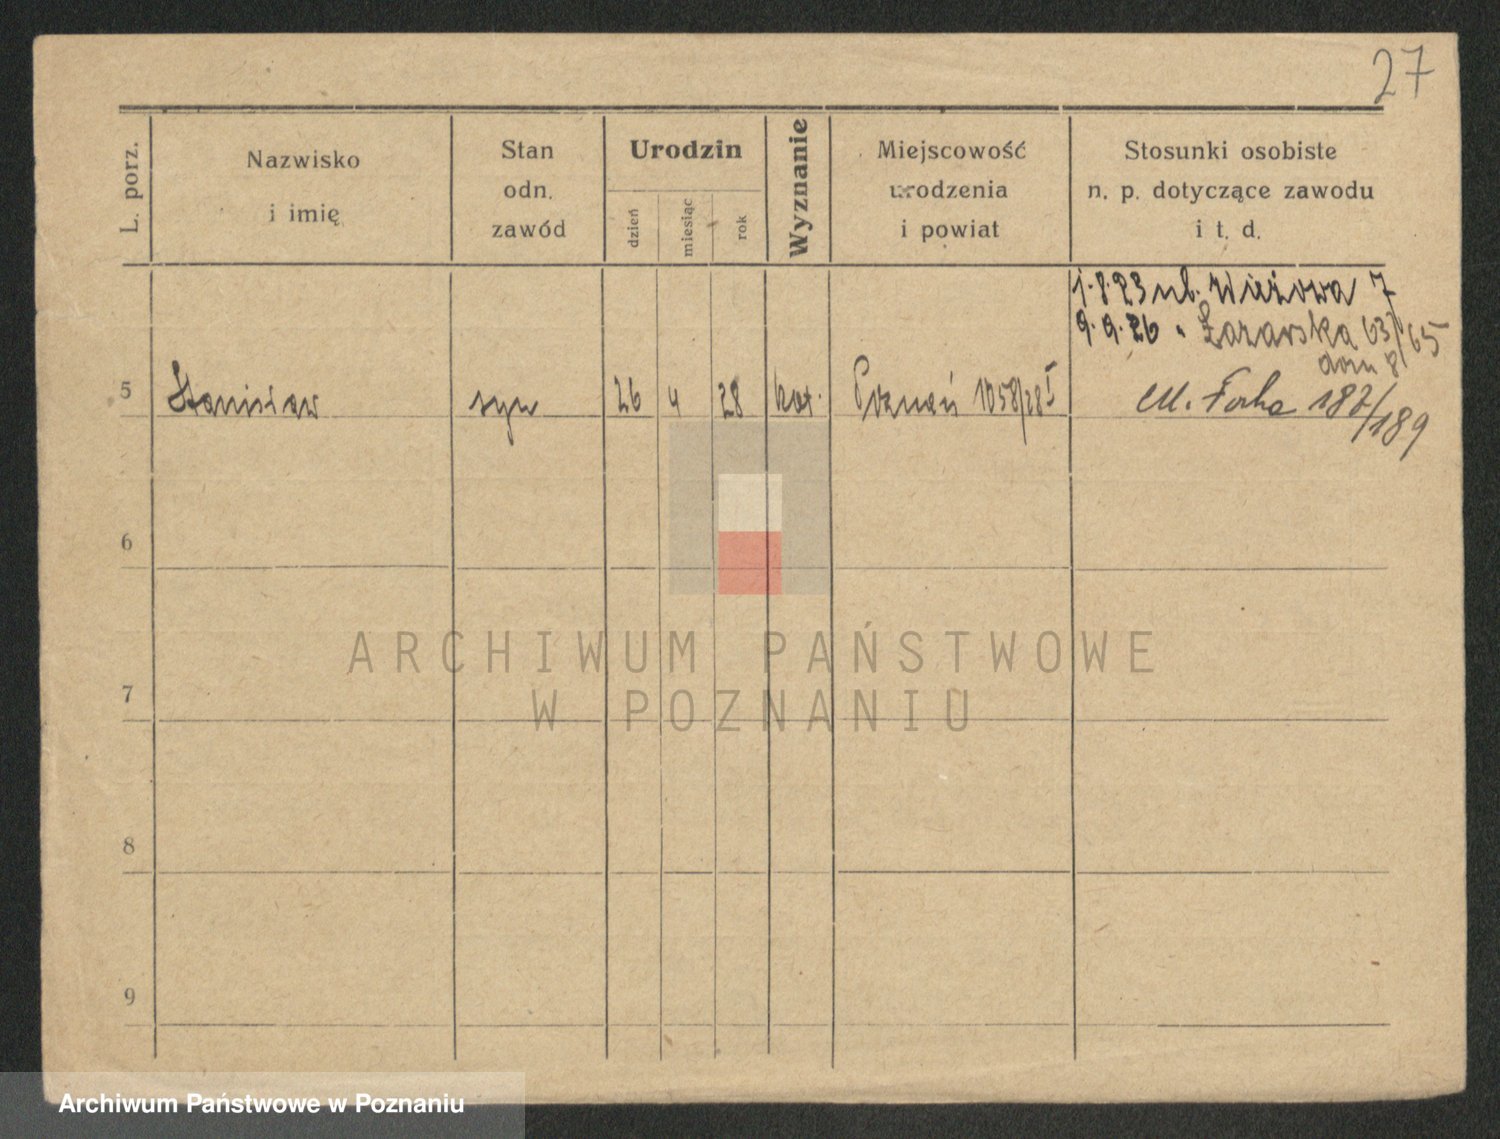 27
L. porz.
Nazwisko
i imię
Stan
odn.
zawód
Urodzin
dzień
miesiąc
rok
Wyznanie
Miejscowość
urodzenia
i powiat
Stosunki osobiste
n. p. dotyczące zawodu
i t. d.
1.8.23 ul. Wieżowa 7
9.9.26 " Łazarska 63/65
dom 8
5 Stanisław syn 26 4 28 kat. Poznań 1058/28 I
ul. Focha 187/189
6
7
8
9
ARCHIWUM PAŃSTWOWE
W POZNANIU
Archiwum Państwowe w Poznaniu